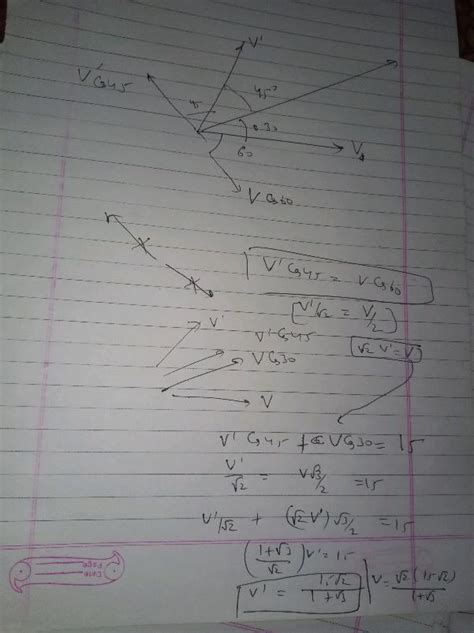 V'
V'Cos45
45°
45
30
60
V
V Cos60
V' Cos45 = V Cos60
[V'/√2 = V/2]
√2 V' = V
V'
V' Cos45
V Cos30
V
V' Cos45 + V Cos30 = 15
V'/√2 = V√3/2 = 15
V'/√2 + (√2 V')√3/2 = 15
((1+√3)/√2) V' = 15
V' = 15√2/(1+√3)
V = √2(15√2)/(1+√3)
Date
Page